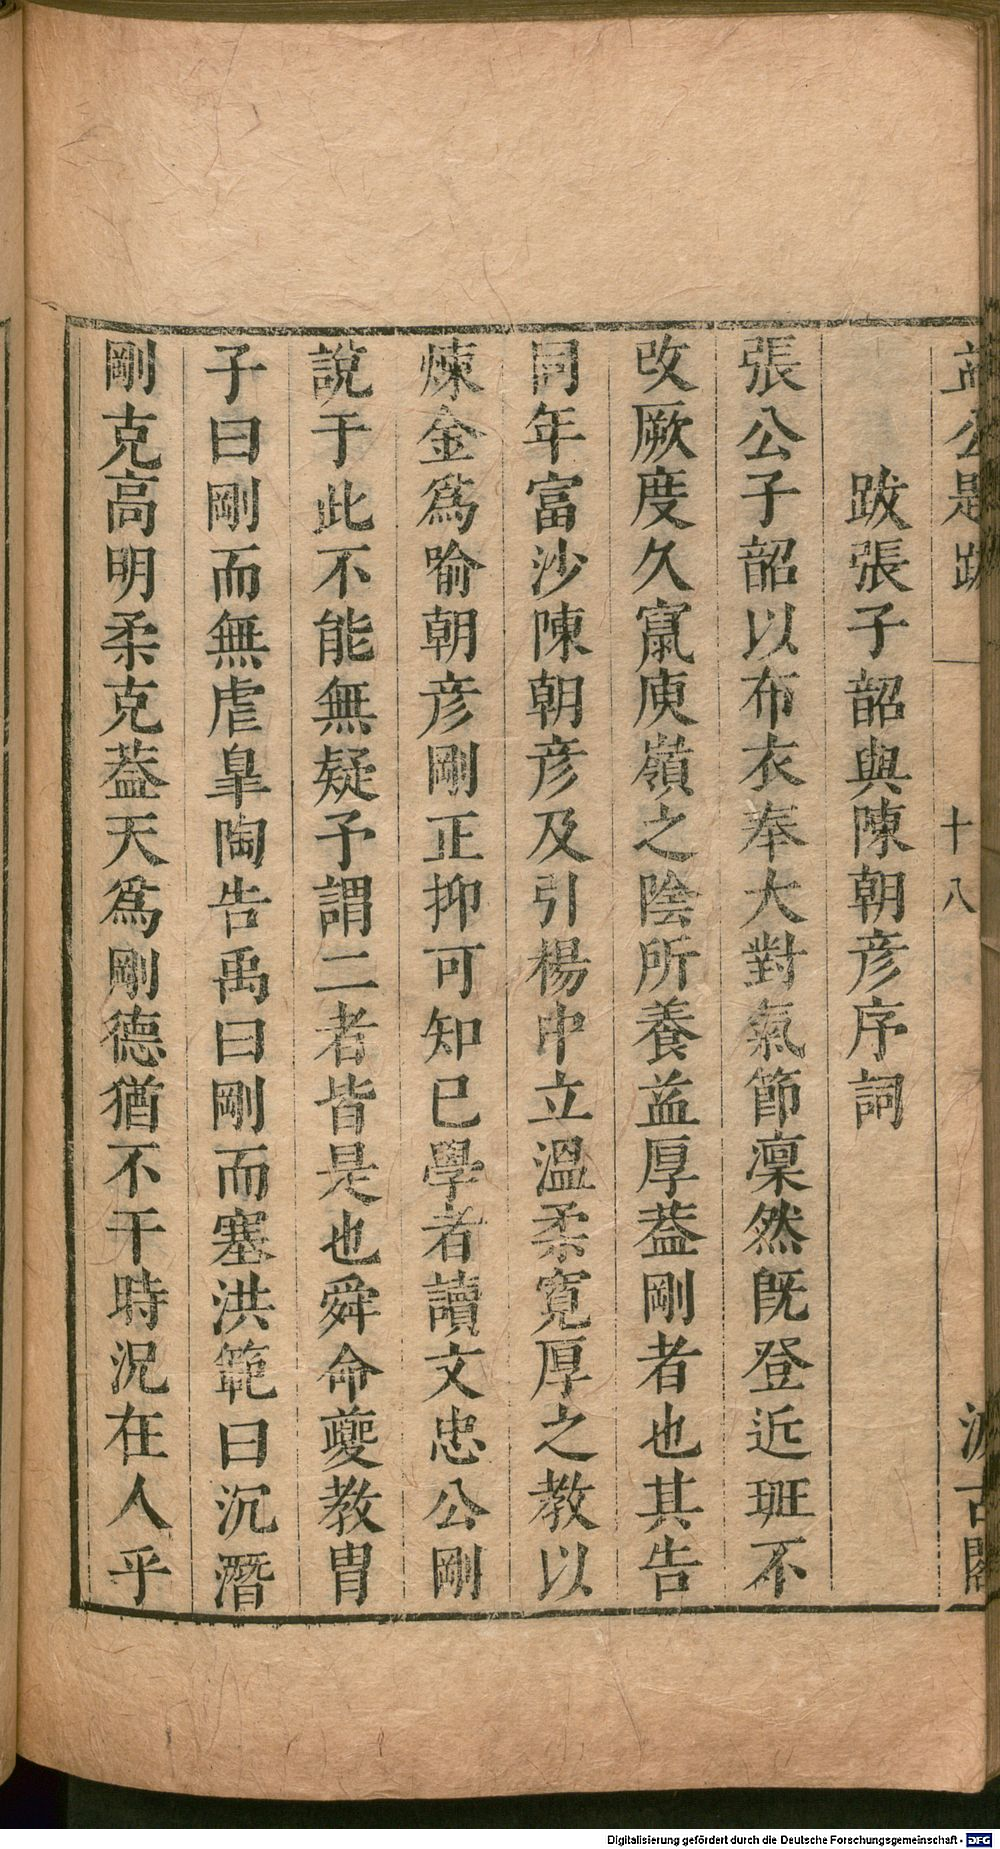 益公題跋 十八 汲古閣
跋張子韶與陳朝彦序詞
張公子韶以布衣奉大對氣節凜然既登近班不
改厥度久竄庾嶺之陰所養益厚葢剛者也其告
同年富沙陳朝彦及引楊中立溫柔寛厚之教以
煉金爲喻朝彦剛正抑可知已學者讀文忠公剛
說于此不能無疑予謂二者皆是也舜命夔教胄
子曰剛而無虐臯陶告禹曰剛而塞洪範曰沉潛
剛克高明柔克葢天爲剛德猶不干時況在人乎
Digitalisierung gefördert durch die Deutsche Forschungsgemeinschaft - DFG